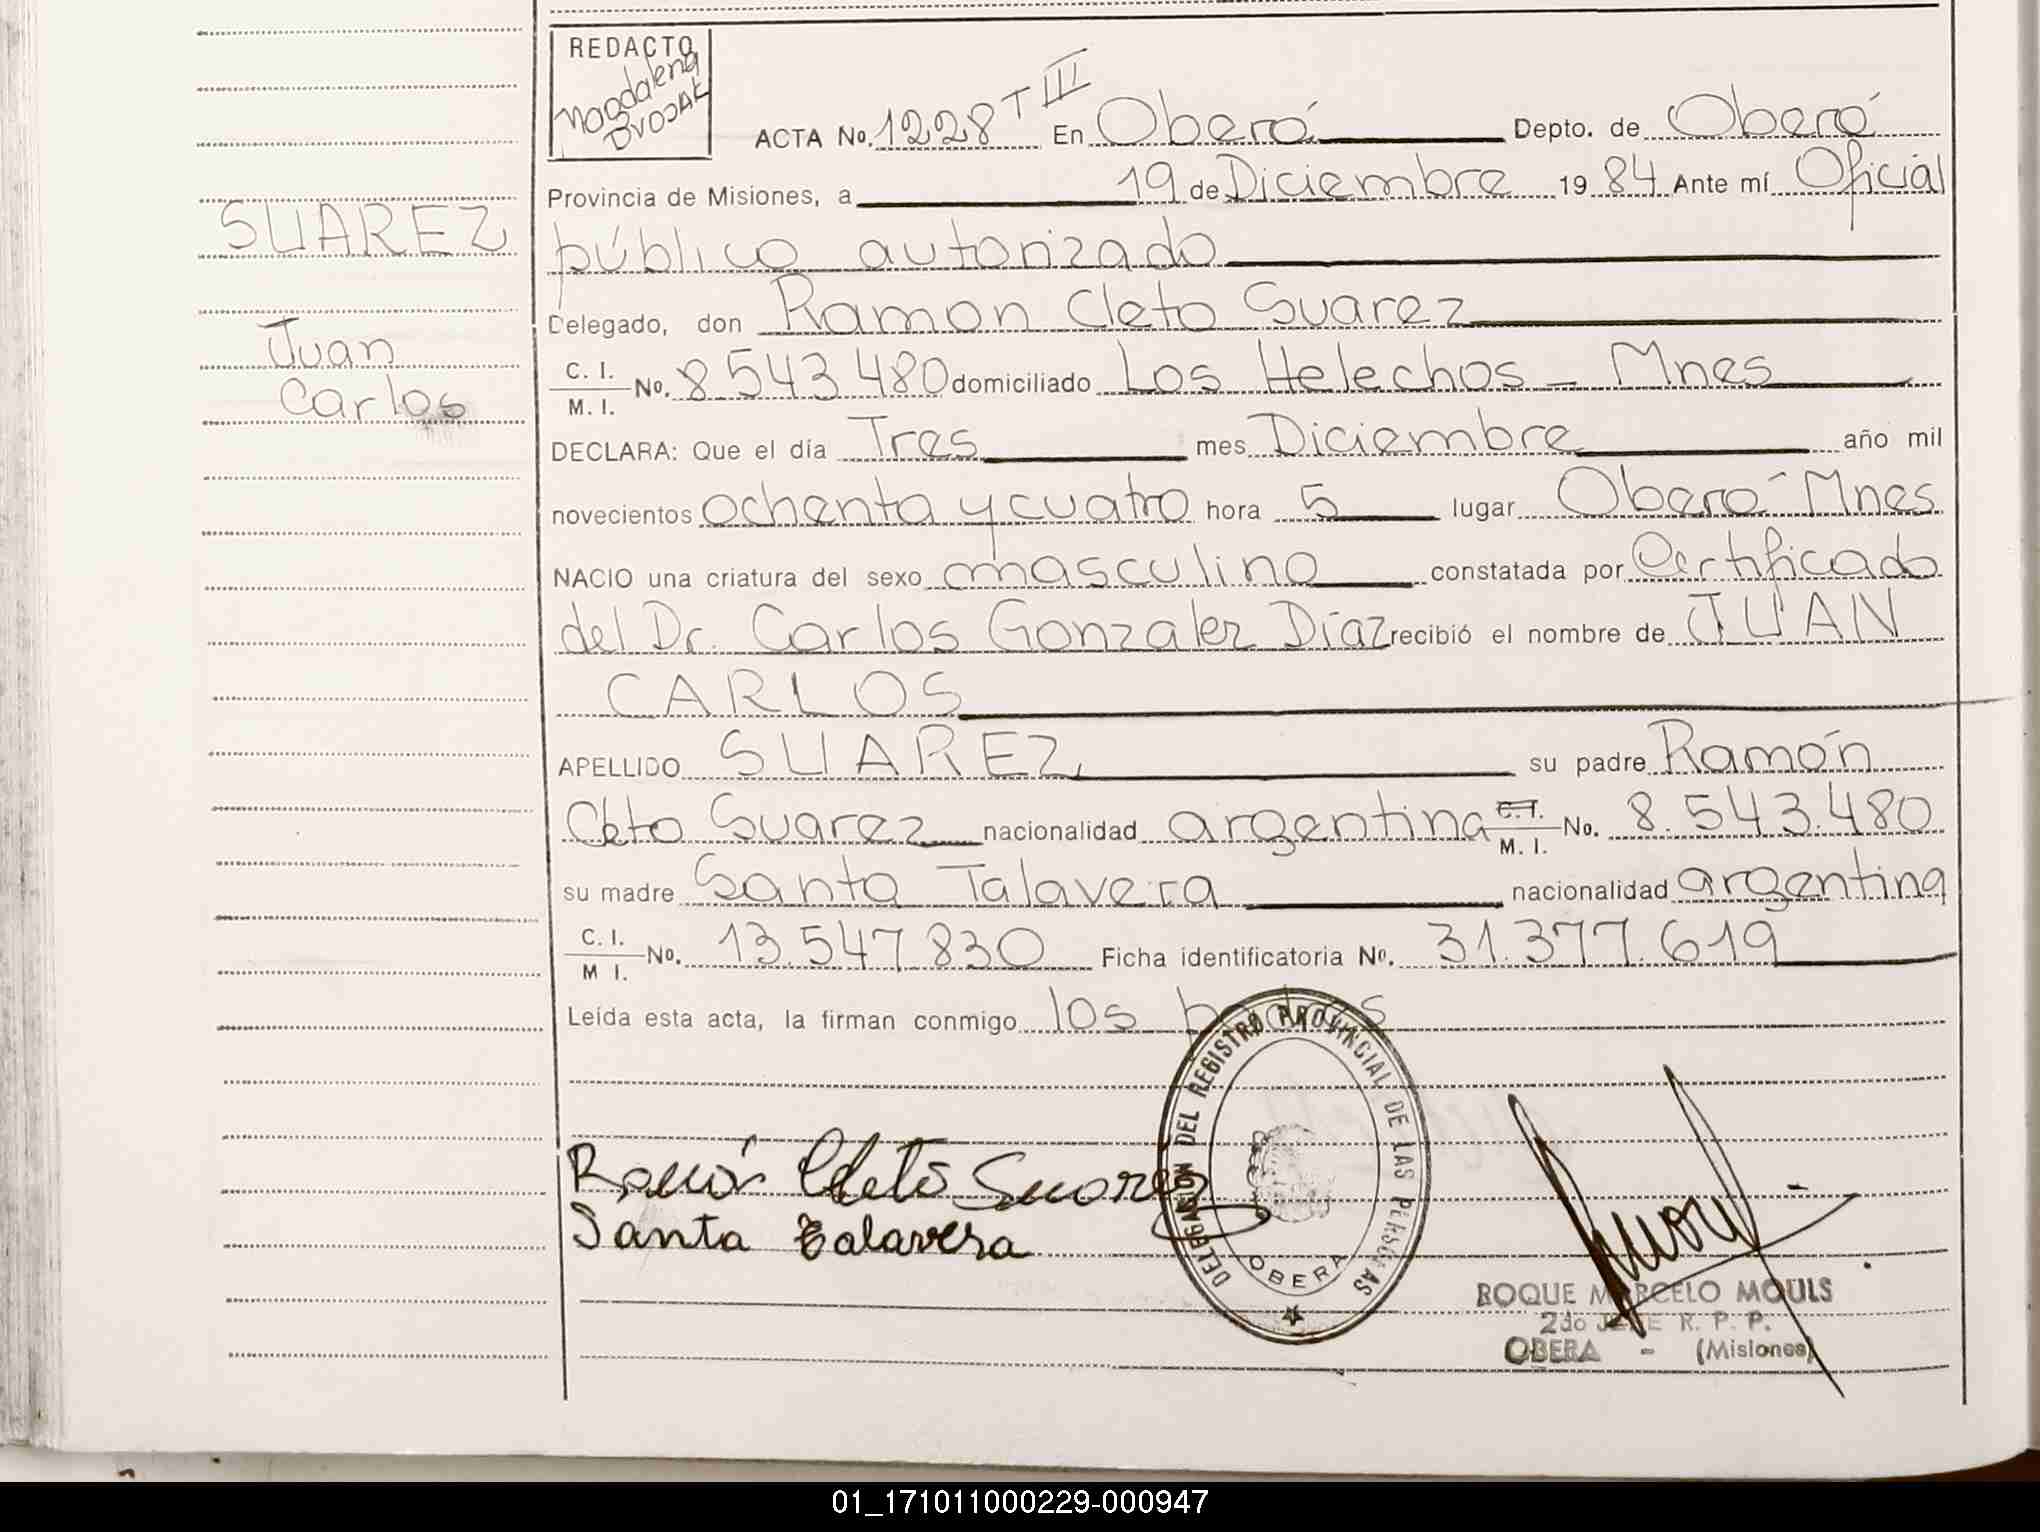 REDACTO
Magdalena
BVOJAK
ACTA No. 1228 T III En Oberá Depto. de Oberá
Provincia de Misiones, a 19 de Diciembre 19 84 Ante mí Oficial
público autorizado
Delegado, don Ramon Cleto Suarez
C. I. / M. I. No. 8.543.480 domiciliado Los Helechos - Mnes
DECLARA: Que el día Tres mes Diciembre año mil
novecientos ochenta y cuatro hora 5 lugar Oberá Mnes
NACIO una criatura del sexo masculino constatada por Certificado
del Dr. Carlos Gonzalez Díaz recibió el nombre de JUAN
CARLOS
APELLIDO SUAREZ su padre Ramón
Cleto Suarez nacionalidad argentina C. I. / M. I. No. 8.543.480
su madre Santa Talavera nacionalidad argentina
C. I. / M I. No. 13.547.830 Ficha identificatoria No. 31.377.619
Leída esta acta, la firman conmigo los padres
SUAREZ
Juan
Carlos
Ramón Cleto Suarez
Santa Talavera
DELEGACION DEL REGISTRO PROVINCIAL DE LAS PERSONAS
OBERA
ROQUE MARCELO MOULS
2do JEFE R. P. P.
OBERA - (Misiones)
01_171011000229-000947